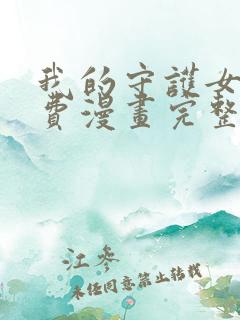 我的守護女
費漫畫完整
江參
未經同意禁止转载